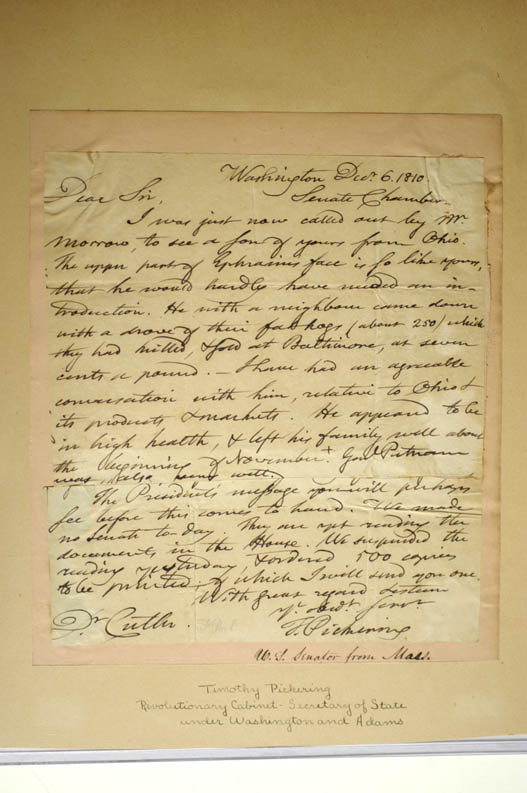 Washington Decr. 6. 1810.
Dear Sir, Senate Chamber.
I was just now called out by Mr.
Morrow, to see a son of yours from Ohio.
The upper part of Ephraim's face is so like yours,
that he would hardly have needed an in-
troduction. He with a neighbour came down
with a drove of their fat hogs (about 250) which
they had killed, & sold at Baltimore, at seven
cents a pound. – I have had an agreeable
conversation with him, relative to Ohio &
its products & markets. He appeared to be
in high health, & left his family well about
the beginning of November. Genl. Putnam
was also well.
The President's message you will perhaps
see before this comes to hand. We made
no Senate to-day. They are yet reading the
documents in the House. We suspended the
reading yesterday, & ordered 500 copies
to be printed; of which I will send you one.
With great regard & esteem
yr. obedt. servt.
Dr. Cutler. T. Pickering
U.S. Senator from Mass.
Timothy Pickering
Revolutionary Cabinet - Secretary of State
under Washington and Adams